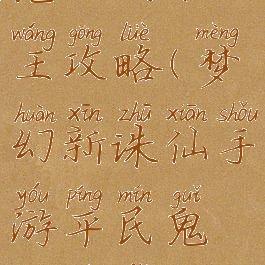 wáng gōng lüè mèng
王攻略(梦
huàn xīn zhū xiān shǒu
幻新诛仙手
yóu píng mín guǐ
游平民鬼